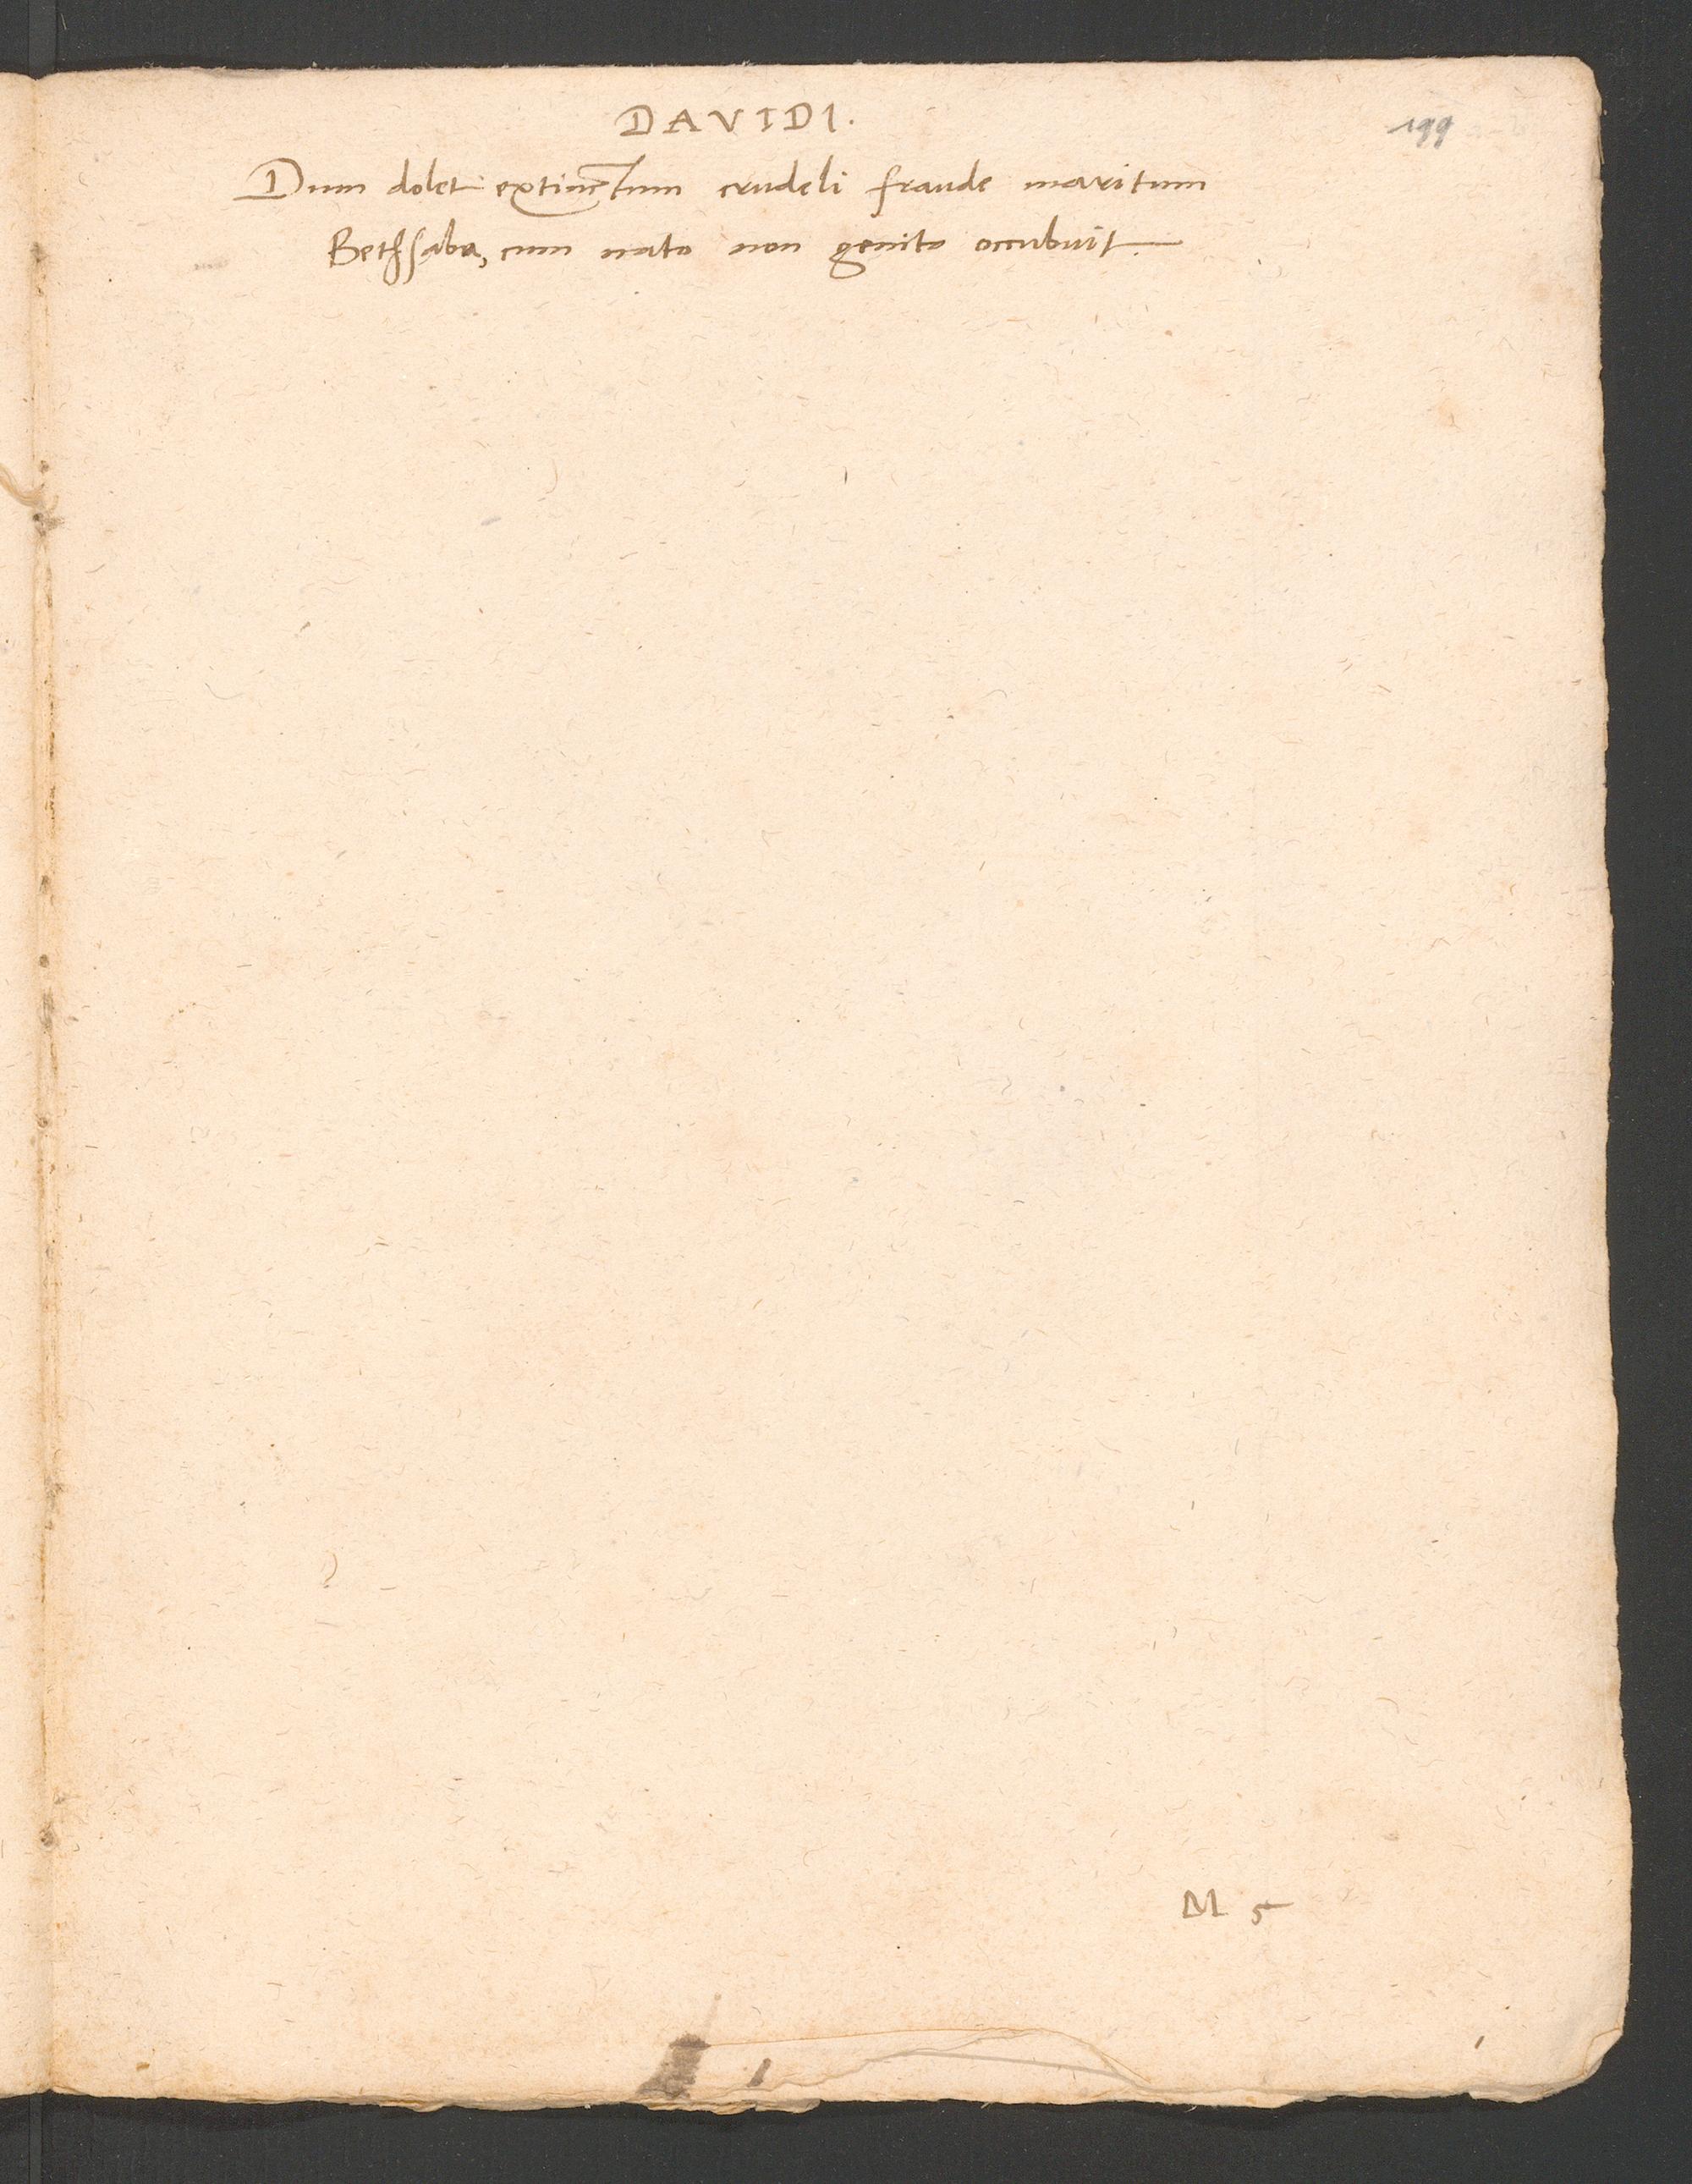 DAVIDI.
199
Dum dolet extinctum crudeli fraude maritum
Bethsaba, cum nato non genito occubuit.
M 5